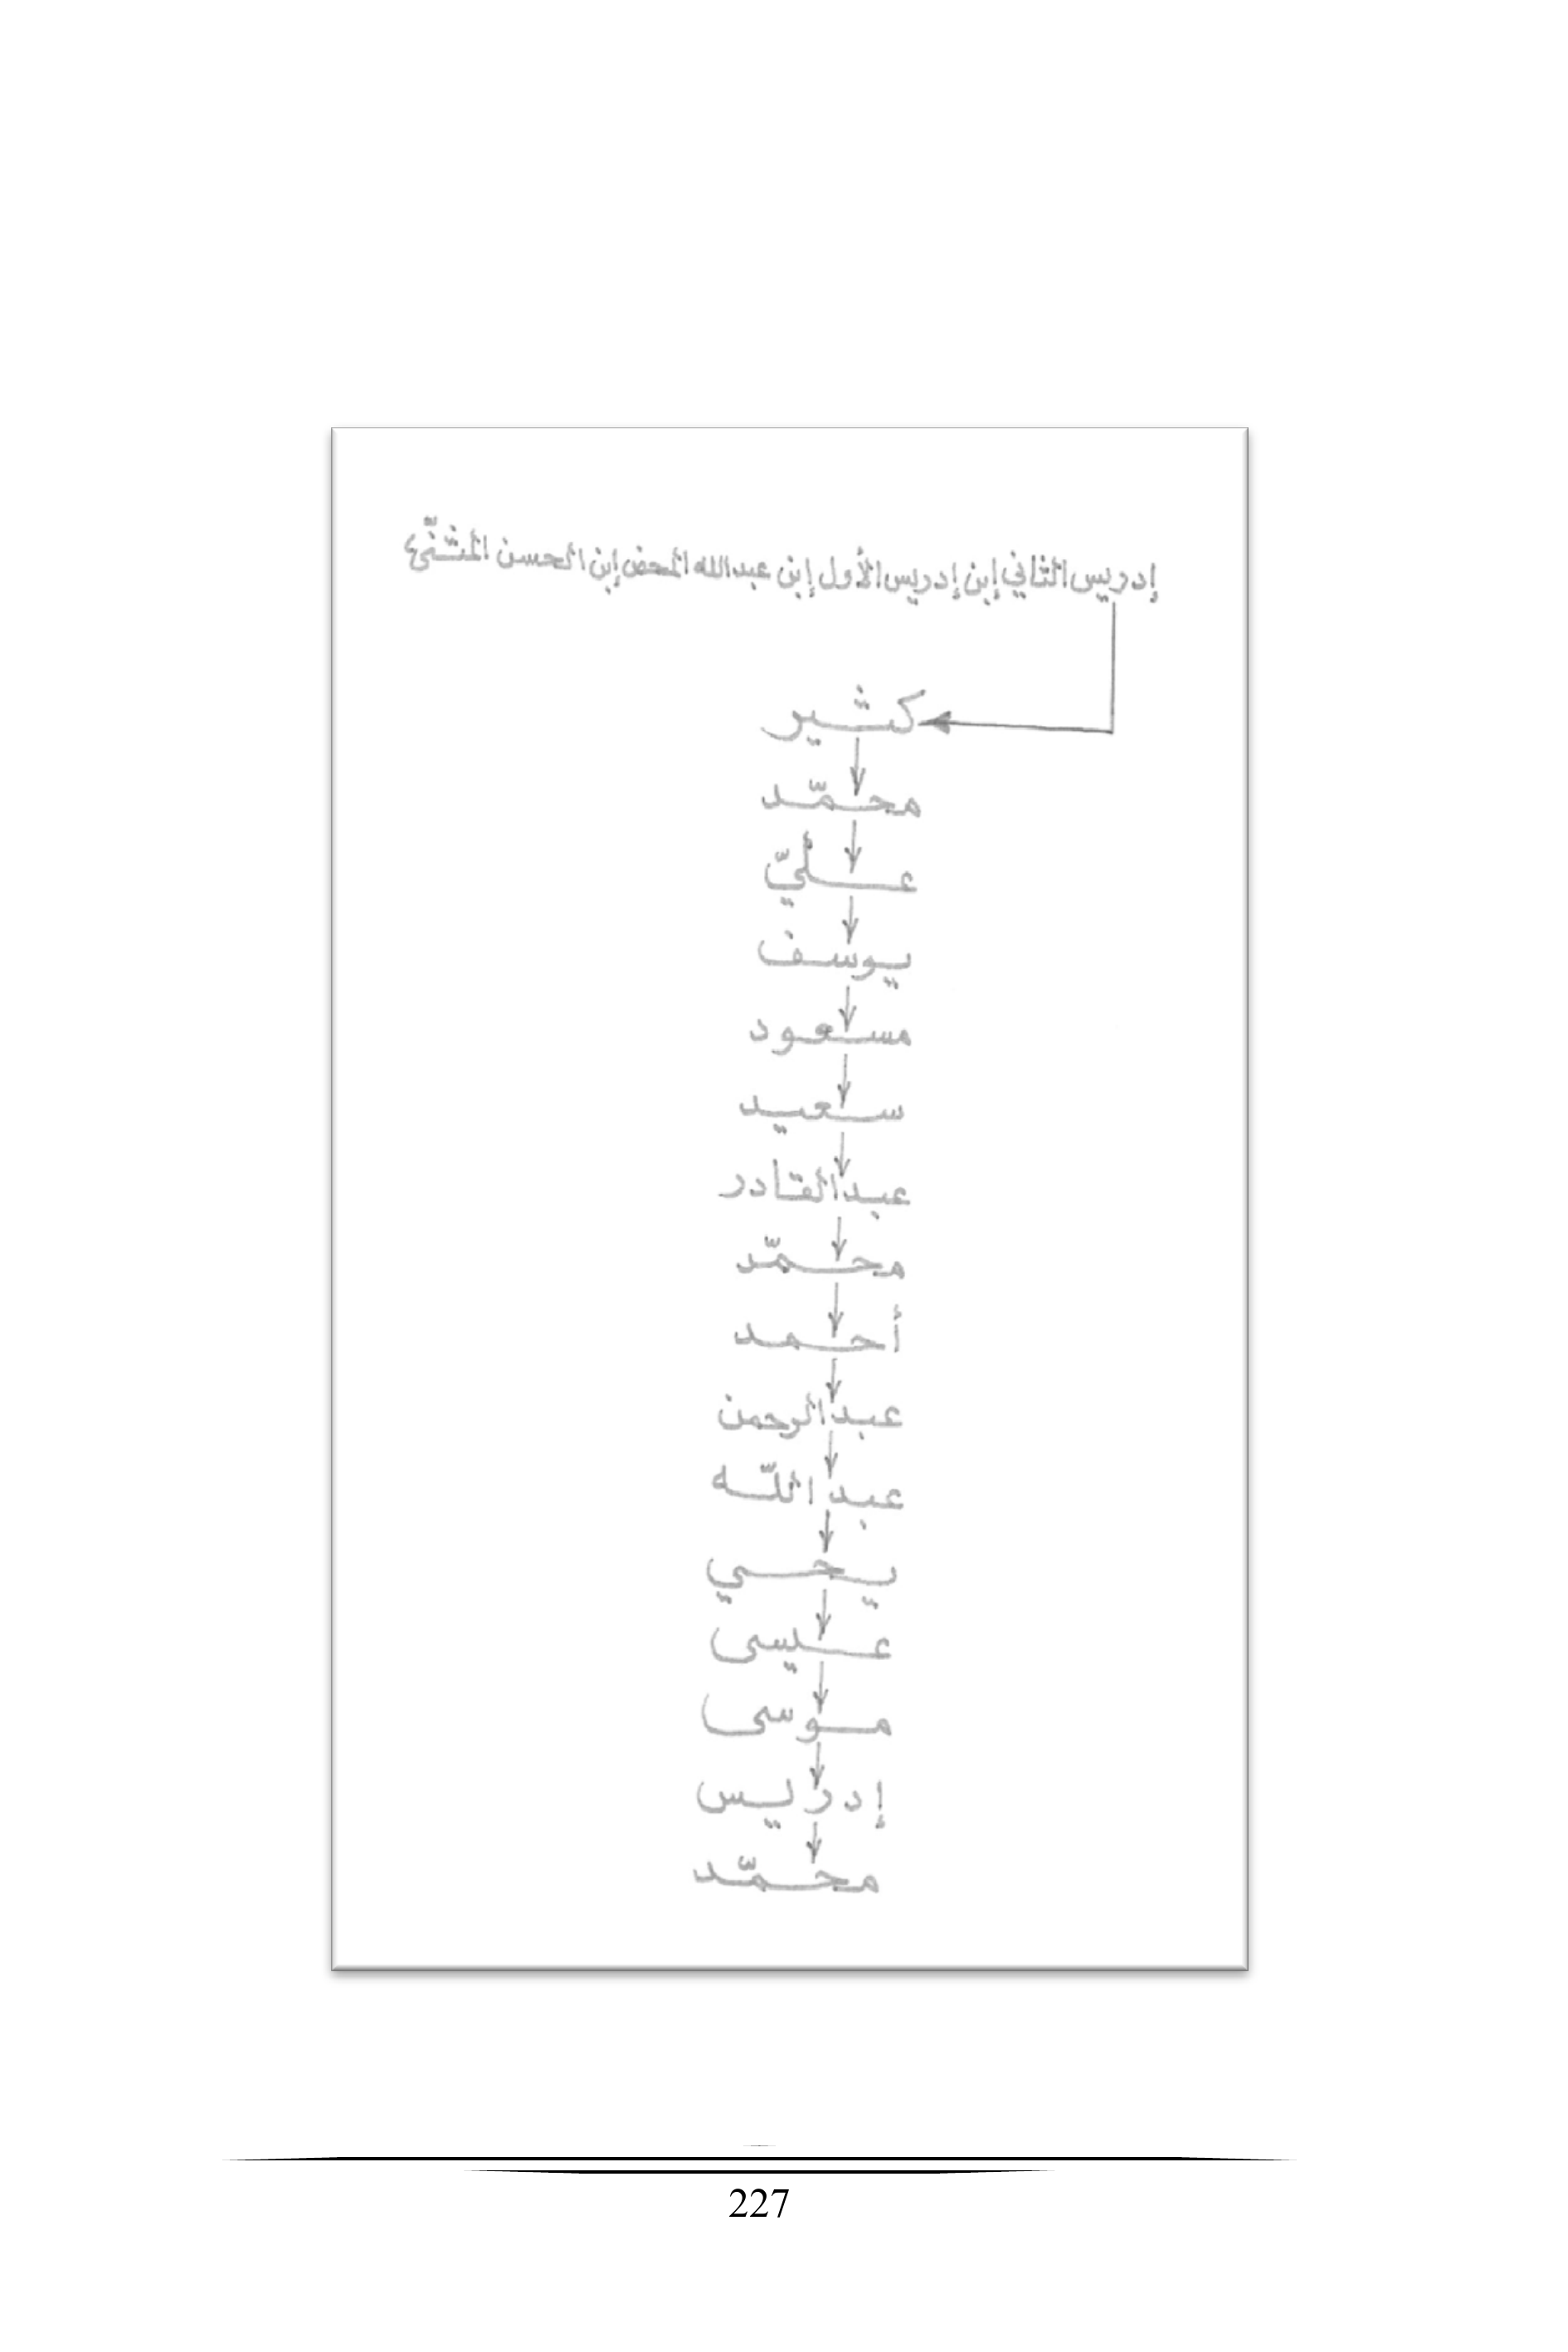 إدريس الثاني إبن إدريس الأول إبن عبدالله المحض إبن الحسن المثنّى
كثير
محمّد
عليّ
يوسف
مسعود
سعيد
عبدالقادر
محمّد
أحمد
عبدالرحمن
عبد اللّه
يحي
عيسى
موسى
إدريس
محمّد
227